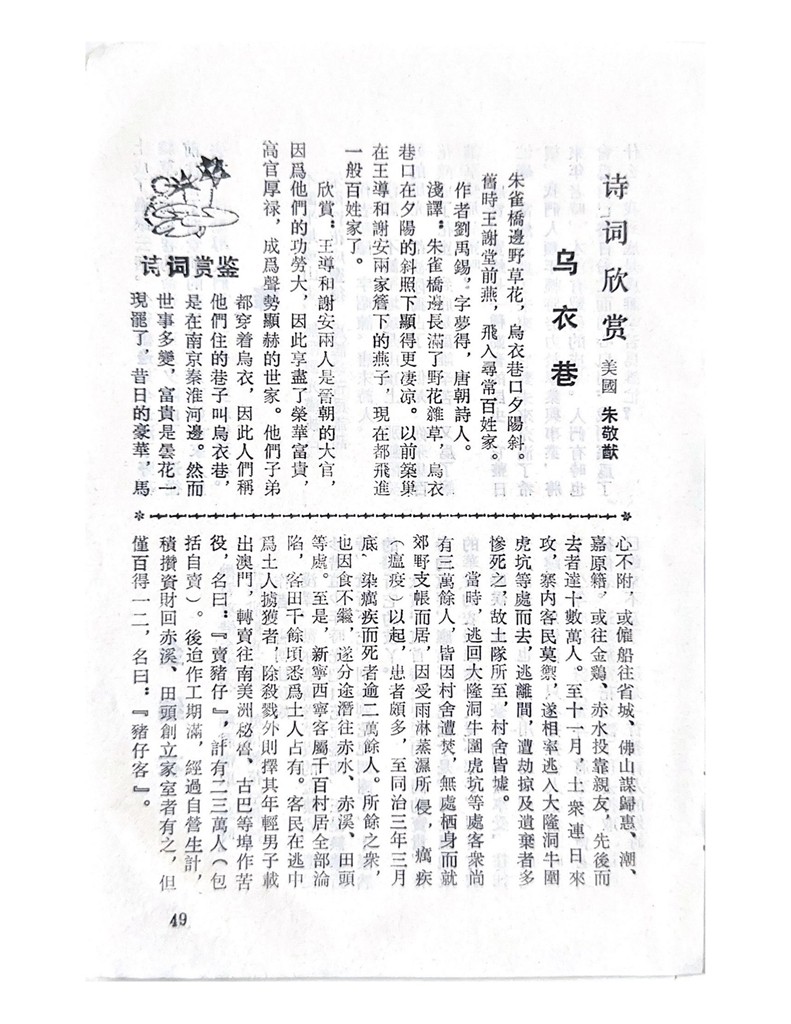 诗词欣赏 美國 朱敬猷
乌衣巷
朱雀橋邊野草花，烏衣巷口夕陽斜。
舊時王謝堂前燕，飛入尋常百姓家。
作者劉禹錫，字夢得，唐朝詩人。
淺譯：朱雀橋邊長滿了野花雜草，烏衣
巷口在夕陽的斜照下顯得更凄凉。以前築巢
在王導和謝安兩家簷下的燕子，現在都飛進
一般百姓家了。
欣賞：王導和謝安兩人是晉朝的大官，
因爲他們的功勞大，因此享盡了榮華富貴，
高官厚禄，成爲聲勢顯赫的世家。他們子弟
都穿着烏衣，因此人們稱
他們住的巷子叫烏衣巷，
是在南京秦淮河邊。然而
世事多變，富貴是曇花一
現罷了，昔日的豪華，馬
诗词赏鉴
心不附，或僱船往省城、佛山謀歸惠、潮、
嘉原籍，或往金鷄、赤水投靠親友，先後而
去者達十數萬人。至十一月，土衆連日來
攻，寨内客民莫禦，遂相率逃入大隆洞牛圍
虎坑等處而去，逃離間，遭劫掠及遺棄者多
慘死之，故土隊所至，村舍皆墟。
當時，逃回大隆洞牛圍虎坑等處客衆尚
有三萬餘人，皆因村舍遭焚，無處栖身而就
郊野支帳而居，因受雨淋蒸濕所侵，癘疾
（瘟疫）以起，患者頗多，至同治三年三月
底、染癘疾而死者逾二萬餘人。所餘之衆，
也因食不繼，遂分途潛往赤水、赤溪、田頭
等處。至是，新寧西寧客屬千百村居全部淪
陷，客田千餘頃悉爲土人占有。客民在逃中
爲土人擄獲者，除殺戮外則擇其年輕男子載
出澳門，轉賣往南美洲秘魯、古巴等埠作苦
役，名曰：『賣豬仔』，計有二三萬人（包
括自賣）。後迫作工期滿，經過自營生計，
積攢資財回赤溪、田頭創立家室者有之，但
僅百得一二，名曰：『豬仔客』。
49